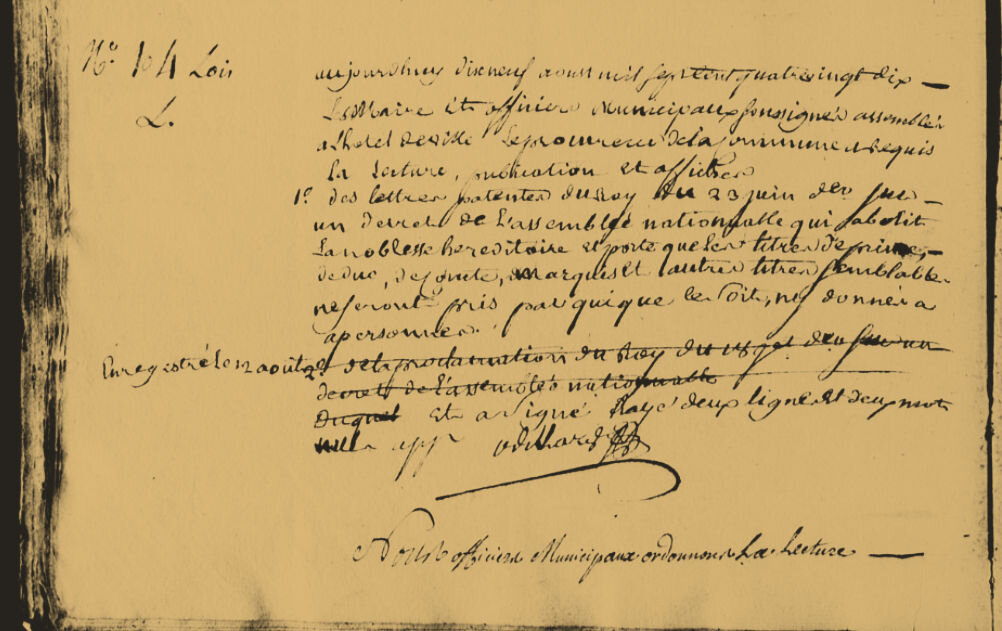 N.º 104 Lois
L.
aujourdhuy dixneuf aoust mil sept cent quatre vingt dix —
Les Maire Et officiers Municipaux soussignés assemblés
a L'hotel de ville Le procureur de la commune a Requis
La Lecture, publication et affiches
1.º des lettres patentes du Roy du 23 juin der sur —
un decret de L'assemblée nationnalle qui abolit
La noblesse hereditoire et porte que les titres de prince,
de duc, de comte, marquis Et autres titres semblables
ne seront pris par qui que ce soit, ny donnés a
a personnes.
Enregestré le 12 aout
2º de la proclamation du Roy du der sur un
decret de L'assemblée nationnalle
Duquel Et a signé Rayé deux lignes Et deux mots
nulle app
Nous officiers Municipaux ordonnons La Lecture —